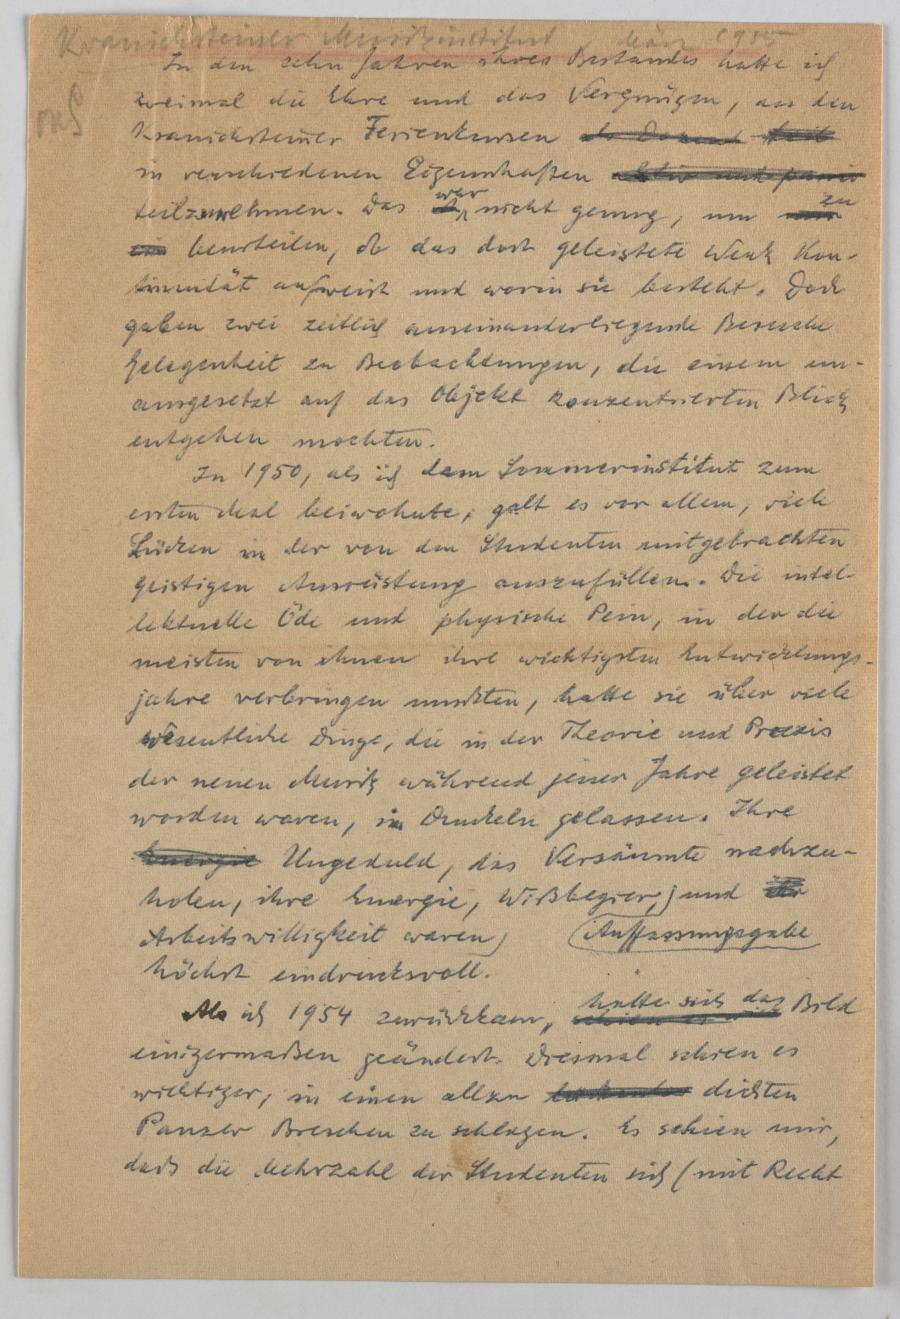 Kranichsteiner Musikinstitut März 1955
In den zehn Jahren ihres Bestandes hatte ich
zweimal die Ehre und das Vergnügen, an den
Kranichsteiner Ferienkursen
in verschiedenen Eigenschaften
teilzunehmen. Das war nicht genug, um zu
beurteilen, ob das dort geleistete Werk Kon-
tinuität aufweist und worin sie besteht. Doch
gaben zwei zeitlich auseinanderliegende Besuche
Gelegenheit zu Beobachtungen, die einem un-
ausgesetzt auf das Objekt konzentrierten Blick
entgehen mochten.
In 1950, als ich dem Sommerinstitut zum
ersten Mal beiwohnte, galt es vor allem, viele
Lücken in der von den Studenten mitgebrachten
geistigen Ausrüstung auszufüllen. Die intel-
lektuelle Öde und physische Pein, in der die
meisten von ihnen ihre wichtigsten Entwicklungs-
jahre verbringen mußten, hatte sie über viele
wesentliche Dinge, die in der Theorie und Praxis
der neuen Musik während jener Jahre geleistet
worden waren, im Dunkeln gelassen. Ihre
Energie Ungeduld, das Versäumte nachzu-
holen, ihre Energie, Wißbegier, und
Arbeitswilligkeit waren Auffassungsgabe
höchst eindrucksvoll.
Als ich 1954 zurückkam, hatte sich das Bild
einigermaßen geändert. Diesmal schien es
wichtiger, in einen allzu dichten
Panzer Breschen zu schlagen. Es schien mir,
daß die Mehrzahl der Studenten sich (mit Recht